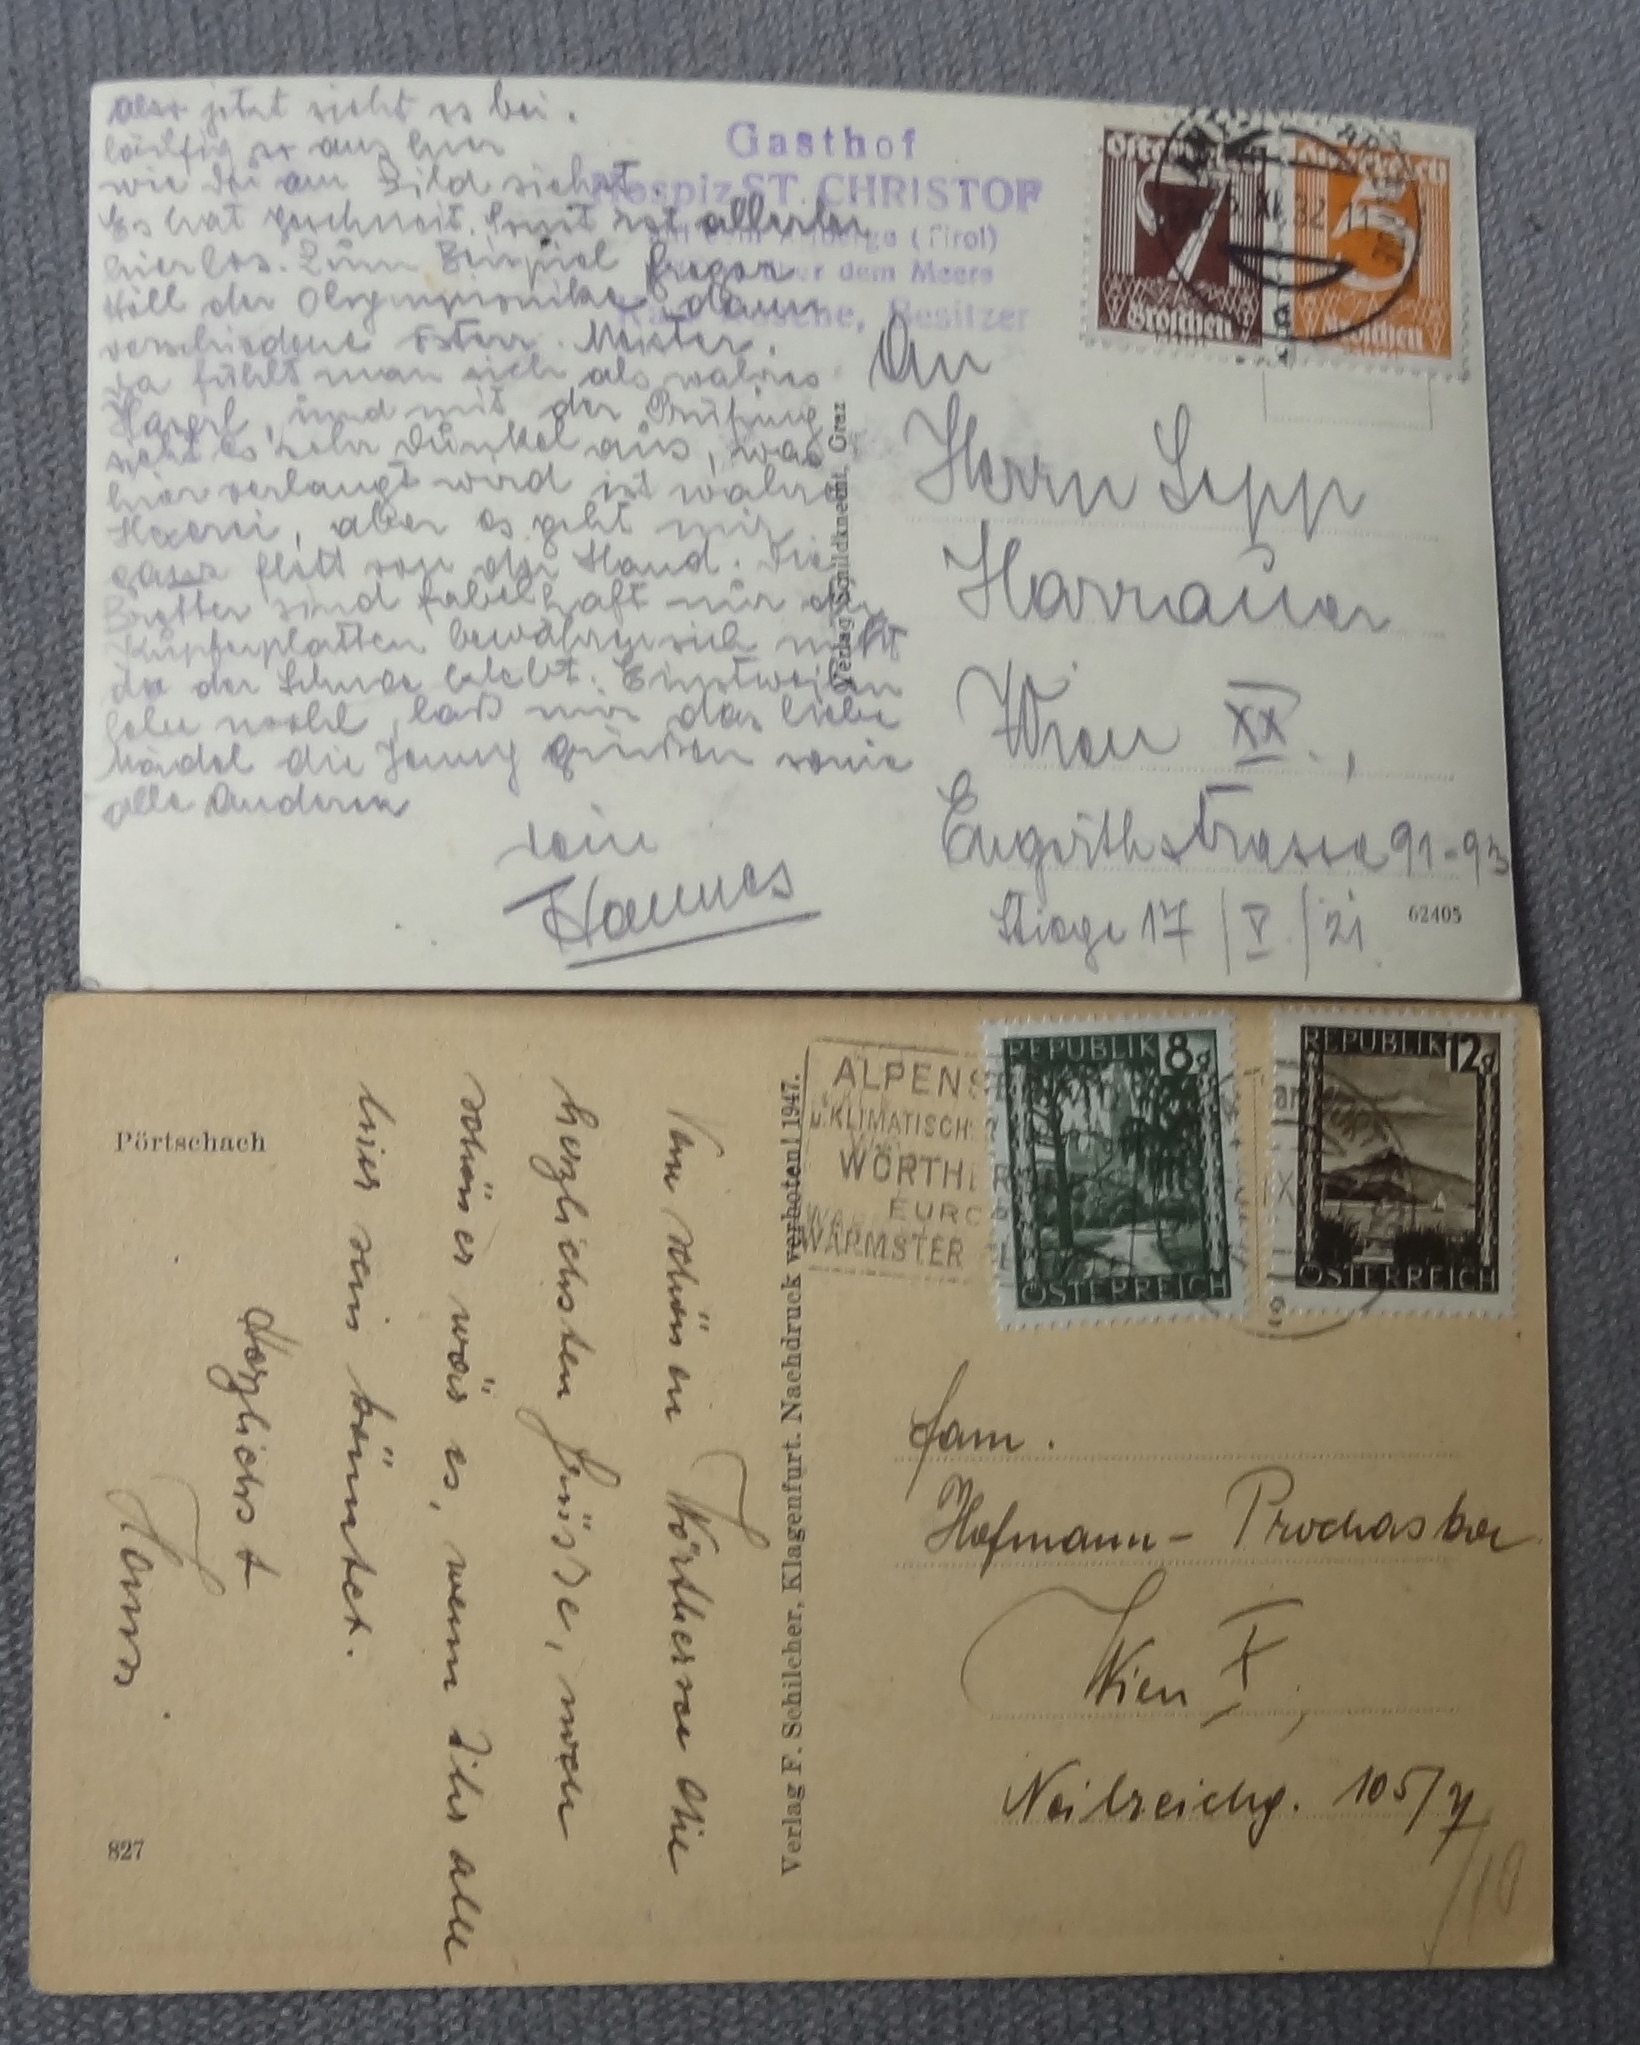 also jetzt sieht es bei.
läufig so aus hier
wie Du am Bild siehst.
Es hat geschneit. Sonst ist allerlei
hier los. Zum Beispiel Gregor
Höll der Olympionike, dann
verschiedene österr. Meister.
da fühlt man sich als wahres
und mit der Prüfung
sieht es sehr dunkel aus, was
hier verlangt wird ist wahre
Hexerei, aber es geht mir
ganz flott von der Hand. Die
Bretter sind fabelhaft nur die
Kupferplatten bewähren sich nicht
da der Schnee klebt. Einstweilen
lebe wohl, laß mir das liebe
Mädel die Jenny grüßen sowie
alle Anderen
Dein
Hannes
Gasthof
Hospiz ST. CHRISTOF
(Tirol)
über dem Meere
Besitzer
Verlag Schildknecht, Graz
Österreich
7
Groschen
Österreich
5
Groschen
XI. 32
An
Herrn Sepp
Harrauer
Wien XX.,
Engerthstrasse 91-93
Stiege 17 / V. / 21
62405
Pörtschach
Vom schönen Wörthersee die
herzlichsten Grüsse, noch
schöner wär es, wenn Ihr alle
hier sein könntet.
Herzlichst
Hanns
827
Verlag F. Schilcher, Klagenfurt. Nachdruck verboten! 1947.
ALPENS
u. KLIMATISCH
WÖRTH
EURO
WÄRMSTER
REPUBLIK 8g
ÖSTERREICH
REPUBLIK 12g
ÖSTERREICH
Fam.
Hofmann - Prochaska
Wien X,
Neilreichg. 105/7
/10